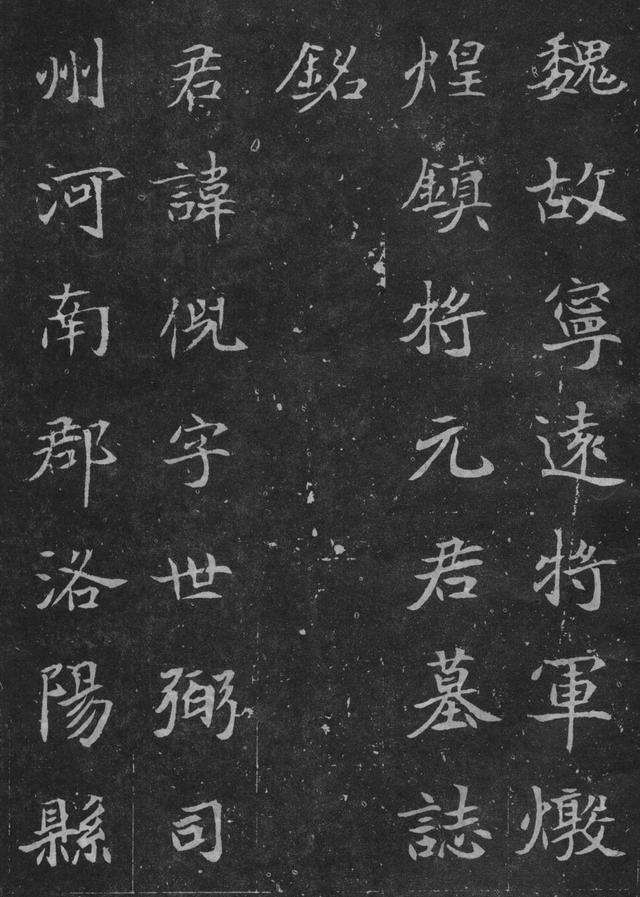 魏故寧遠將軍燉
煌鎮將元君墓誌
銘
君諱倪字世弼司
州河南郡洛陽縣